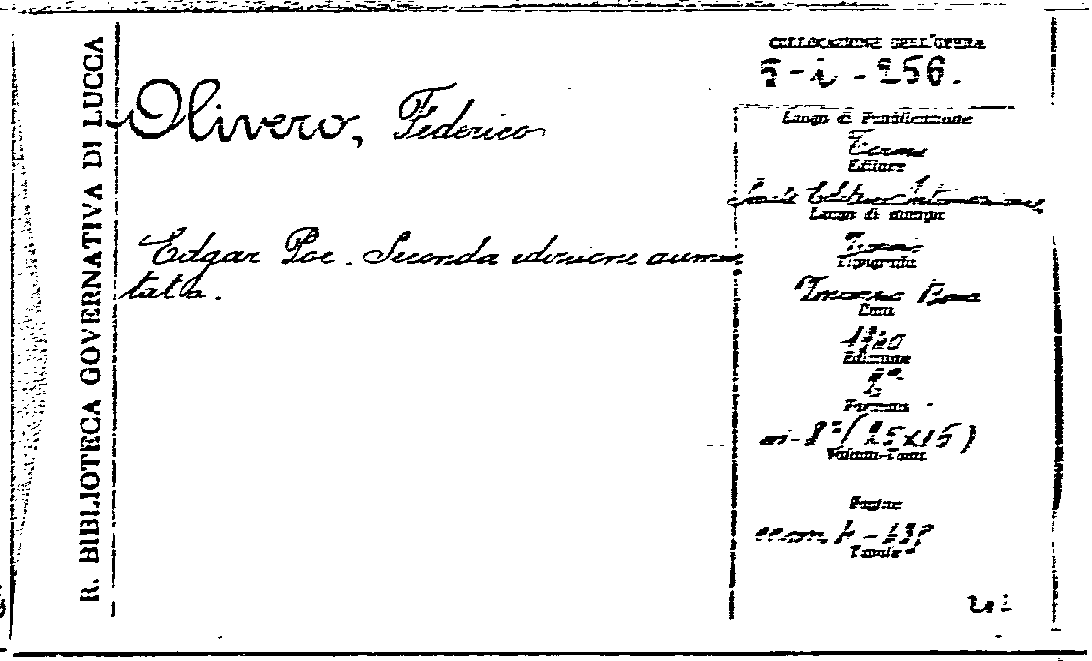 R. BIBLIOTECA GOVERNATIVA DI LUCCA
Olivero, Federico
Edgar Poe. Seconda edizione aumen
tata.
COLLOCAZIONE DELL'OPERA
256.
Luogo di Pubblicazione
Torino
Editore
Luogo di stampa
Torino
Tipografia
Data
Edizione
2ª
Formato
in-8º (25x15)
Volumi-Tomi
Pagine
Tavole